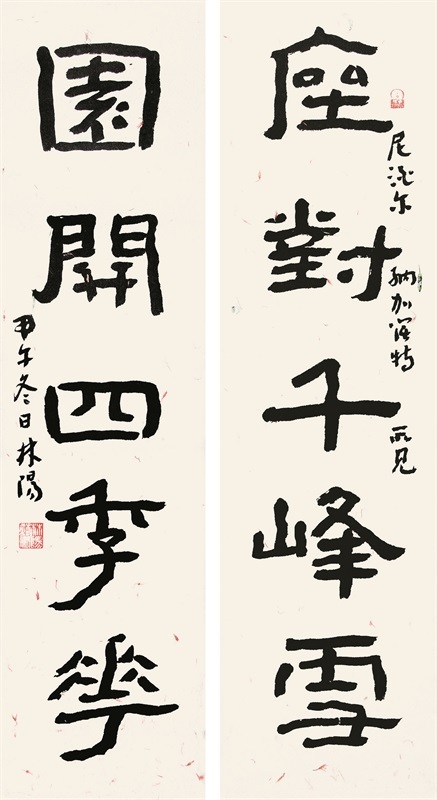 座對千峰雪
尼泊尔 納加阔特 所見
園開四季華
甲午冬日林陽